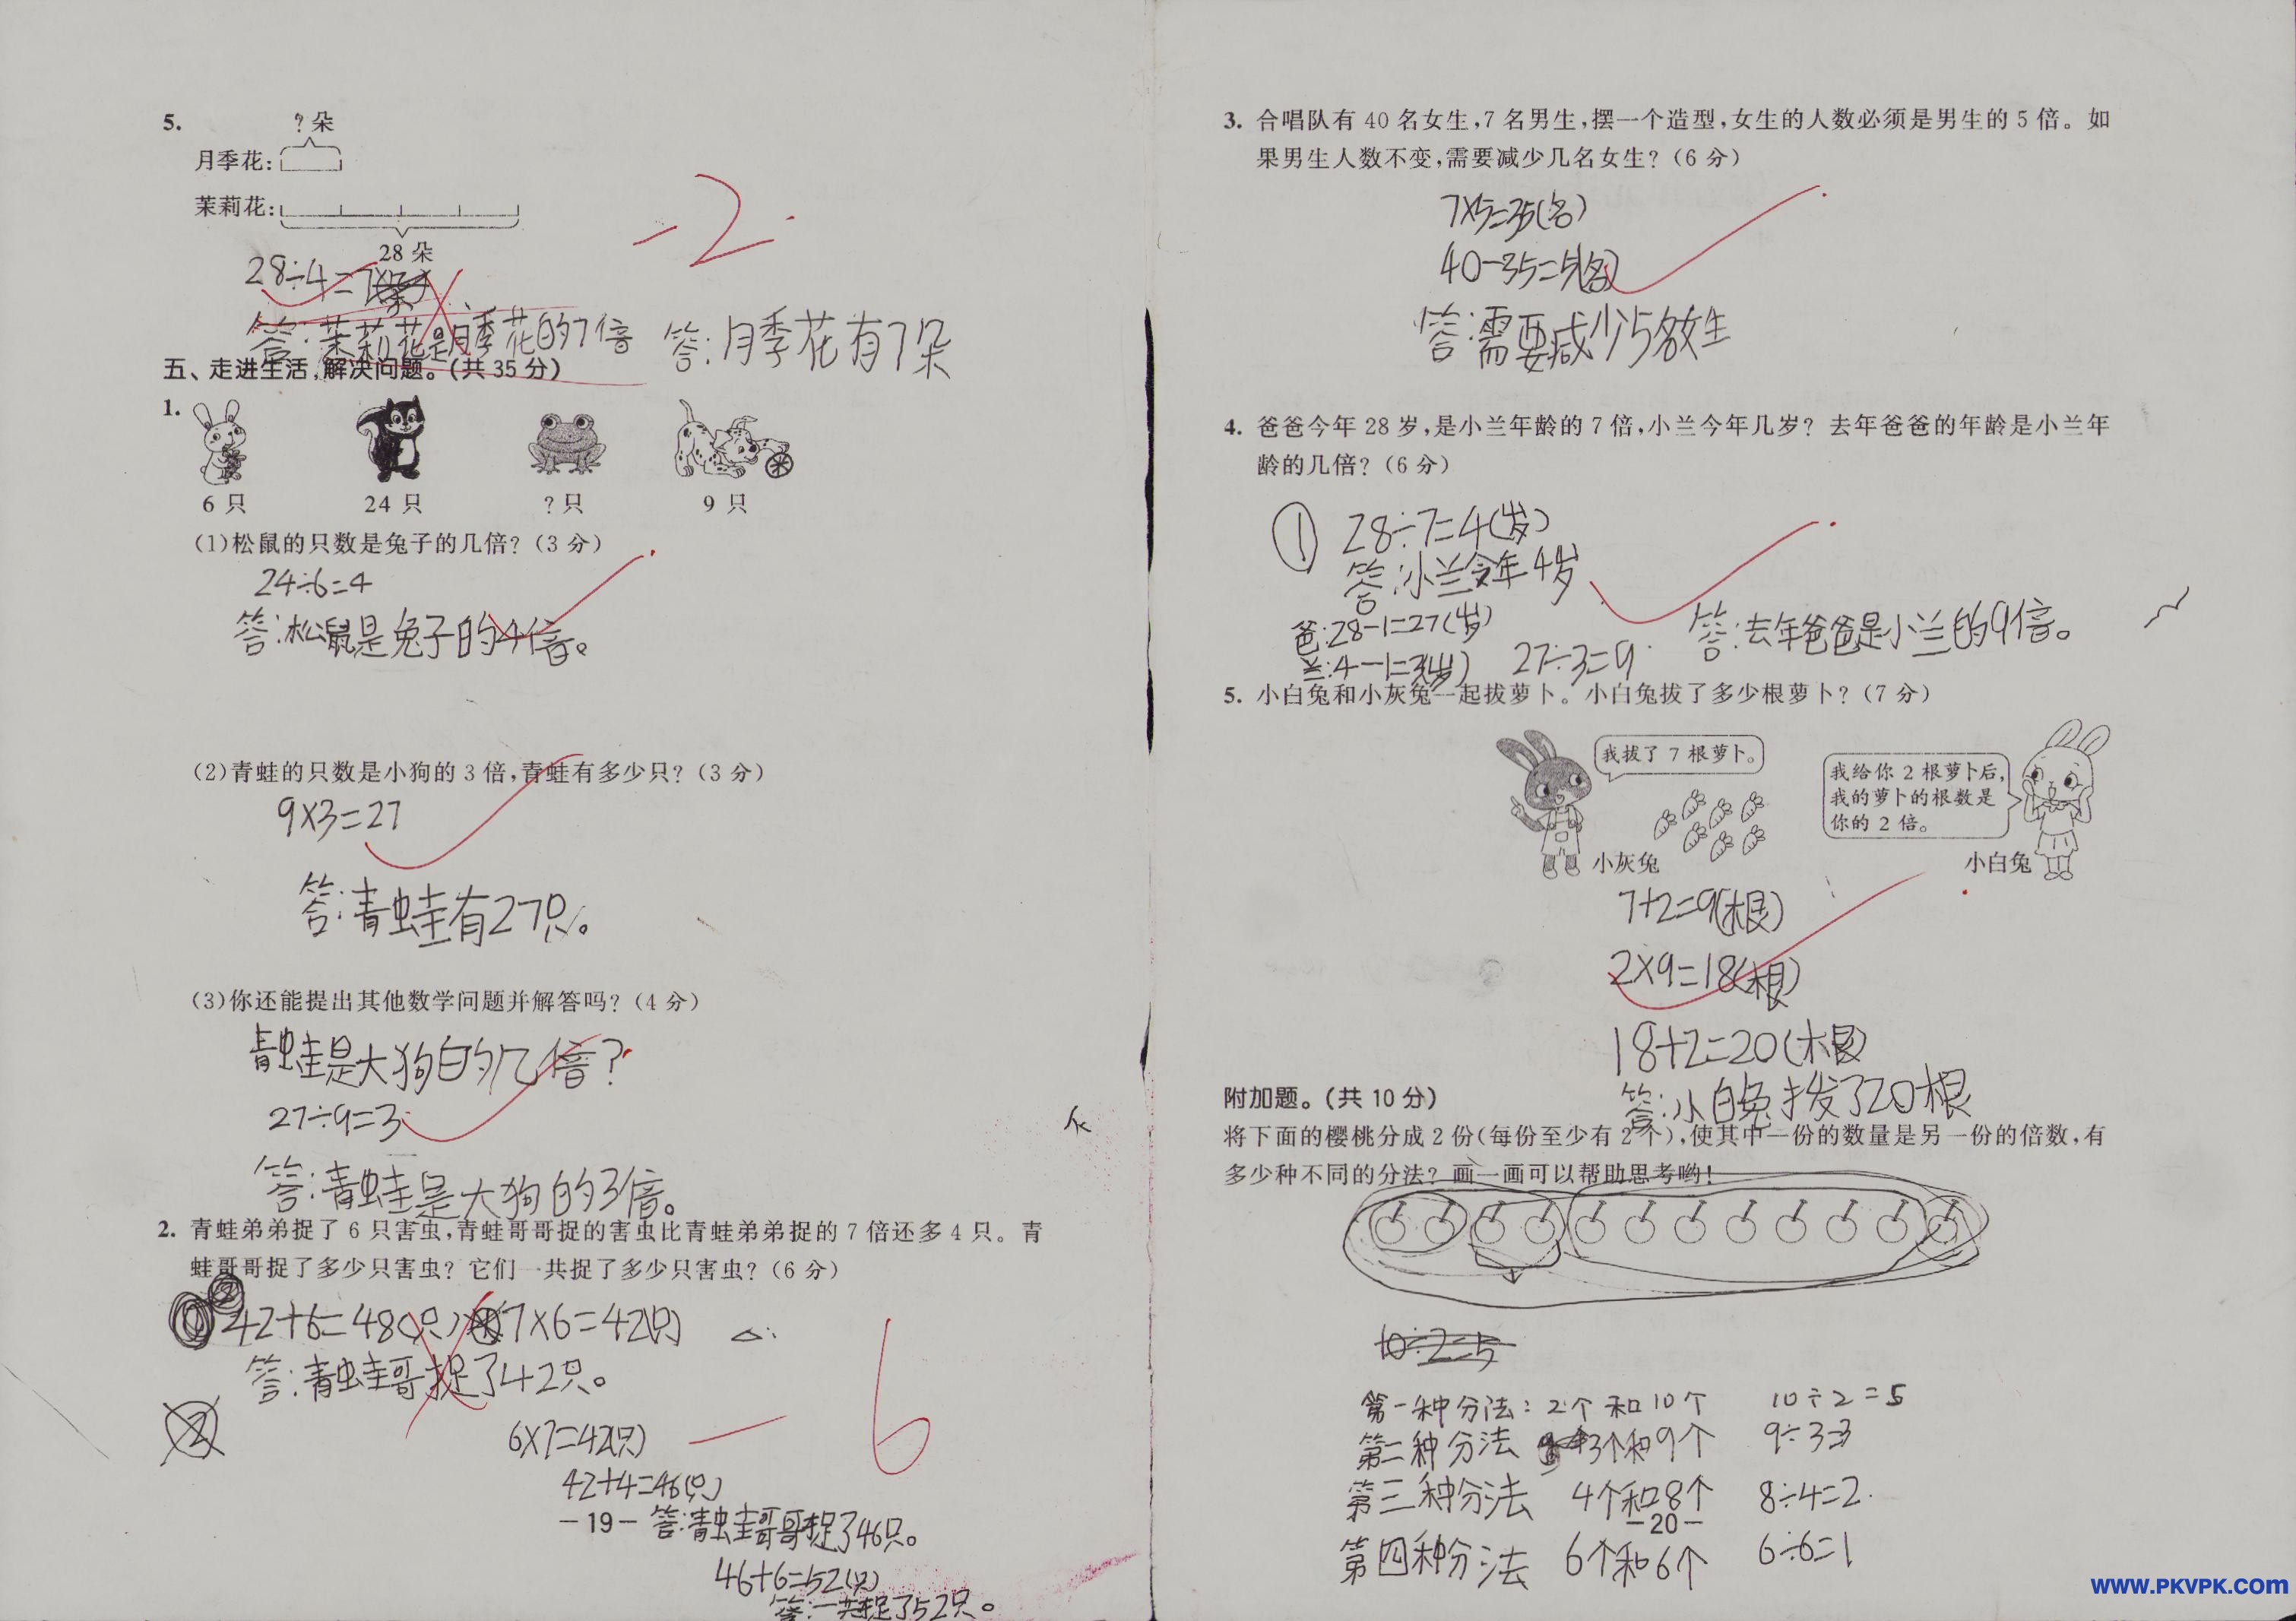 5.
? 朵
月季花:
茉莉花:
28 朵
28÷4=7
答:茉莉花是月季花的7倍
-2
答:月季花有7朵
五、走进生活,解决问题。(共 35 分)
1.
6 只 24 只 ? 只 9 只
(1)松鼠的只数是兔子的几倍?(3 分)
24÷6=4
答:松鼠是兔子的4倍。
(2)青蛙的只数是小狗的 3 倍,青蛙有多少只?(3 分)
9×3=27
答:青蛙有27只。
(3)你还能提出其他数学问题并解答吗?(4 分)
青蛙是大狗的几倍?
27÷9=3
答:青蛙是大狗的3倍。
2. 青蛙弟弟捉了 6 只害虫,青蛙哥哥捉的害虫比青蛙弟弟捉的 7 倍还多 4 只。青
蛙哥哥捉了多少只害虫? 它们一共捉了多少只害虫?(6 分)
42+6=48(只) 7×6=42(只)
答:青蛙哥捉了42只。
②
-6
6×7=42(只)
42+4=46(只)
-19-
答:青蛙哥哥捉了46只。
46+6=52(只)
答:一共捉了52只。
3. 合唱队有 40 名女生,7 名男生,摆一个造型,女生的人数必须是男生的 5 倍。如
果男生人数不变,需要减少几名女生?(6 分)
7×5=35(名)
40-35=5(名)
答:需要减少5名女生
4. 爸爸今年 28 岁,是小兰年龄的 7 倍,小兰今年几岁? 去年爸爸的年龄是小兰年
龄的几倍?(6 分)
① 28÷7=4(岁)
答:小兰今年4岁
爸:28-1=27(岁)
兰:4-1=3(岁) 27÷3=9
答:去年爸爸是小兰的9倍。
5. 小白兔和小灰兔一起拔萝卜。小白兔拔了多少根萝卜?(7 分)
我拔了 7 根萝卜。
小灰兔
我给你 2 根萝卜后,
我的萝卜的根数是
你的 2 倍。
小白兔
7+2=9(根)
2×9=18(根)
18+2=20(根)
答:小白兔拨了20根
附加题。(共 10 分)
将下面的樱桃分成 2 份(每份至少有 2 个),使其中一份的数量是另一份的倍数,有
多少种不同的分法? 画一画可以帮助思考哟!
10÷2=5
第一种分法:2个和10个 10÷2=5
第二种分法 3个和9个 9÷3=3
第三种分法 4个和8个 8÷4=2
-20-
第四种分法 6个和6个 6÷6=1
www.PKVPK.com